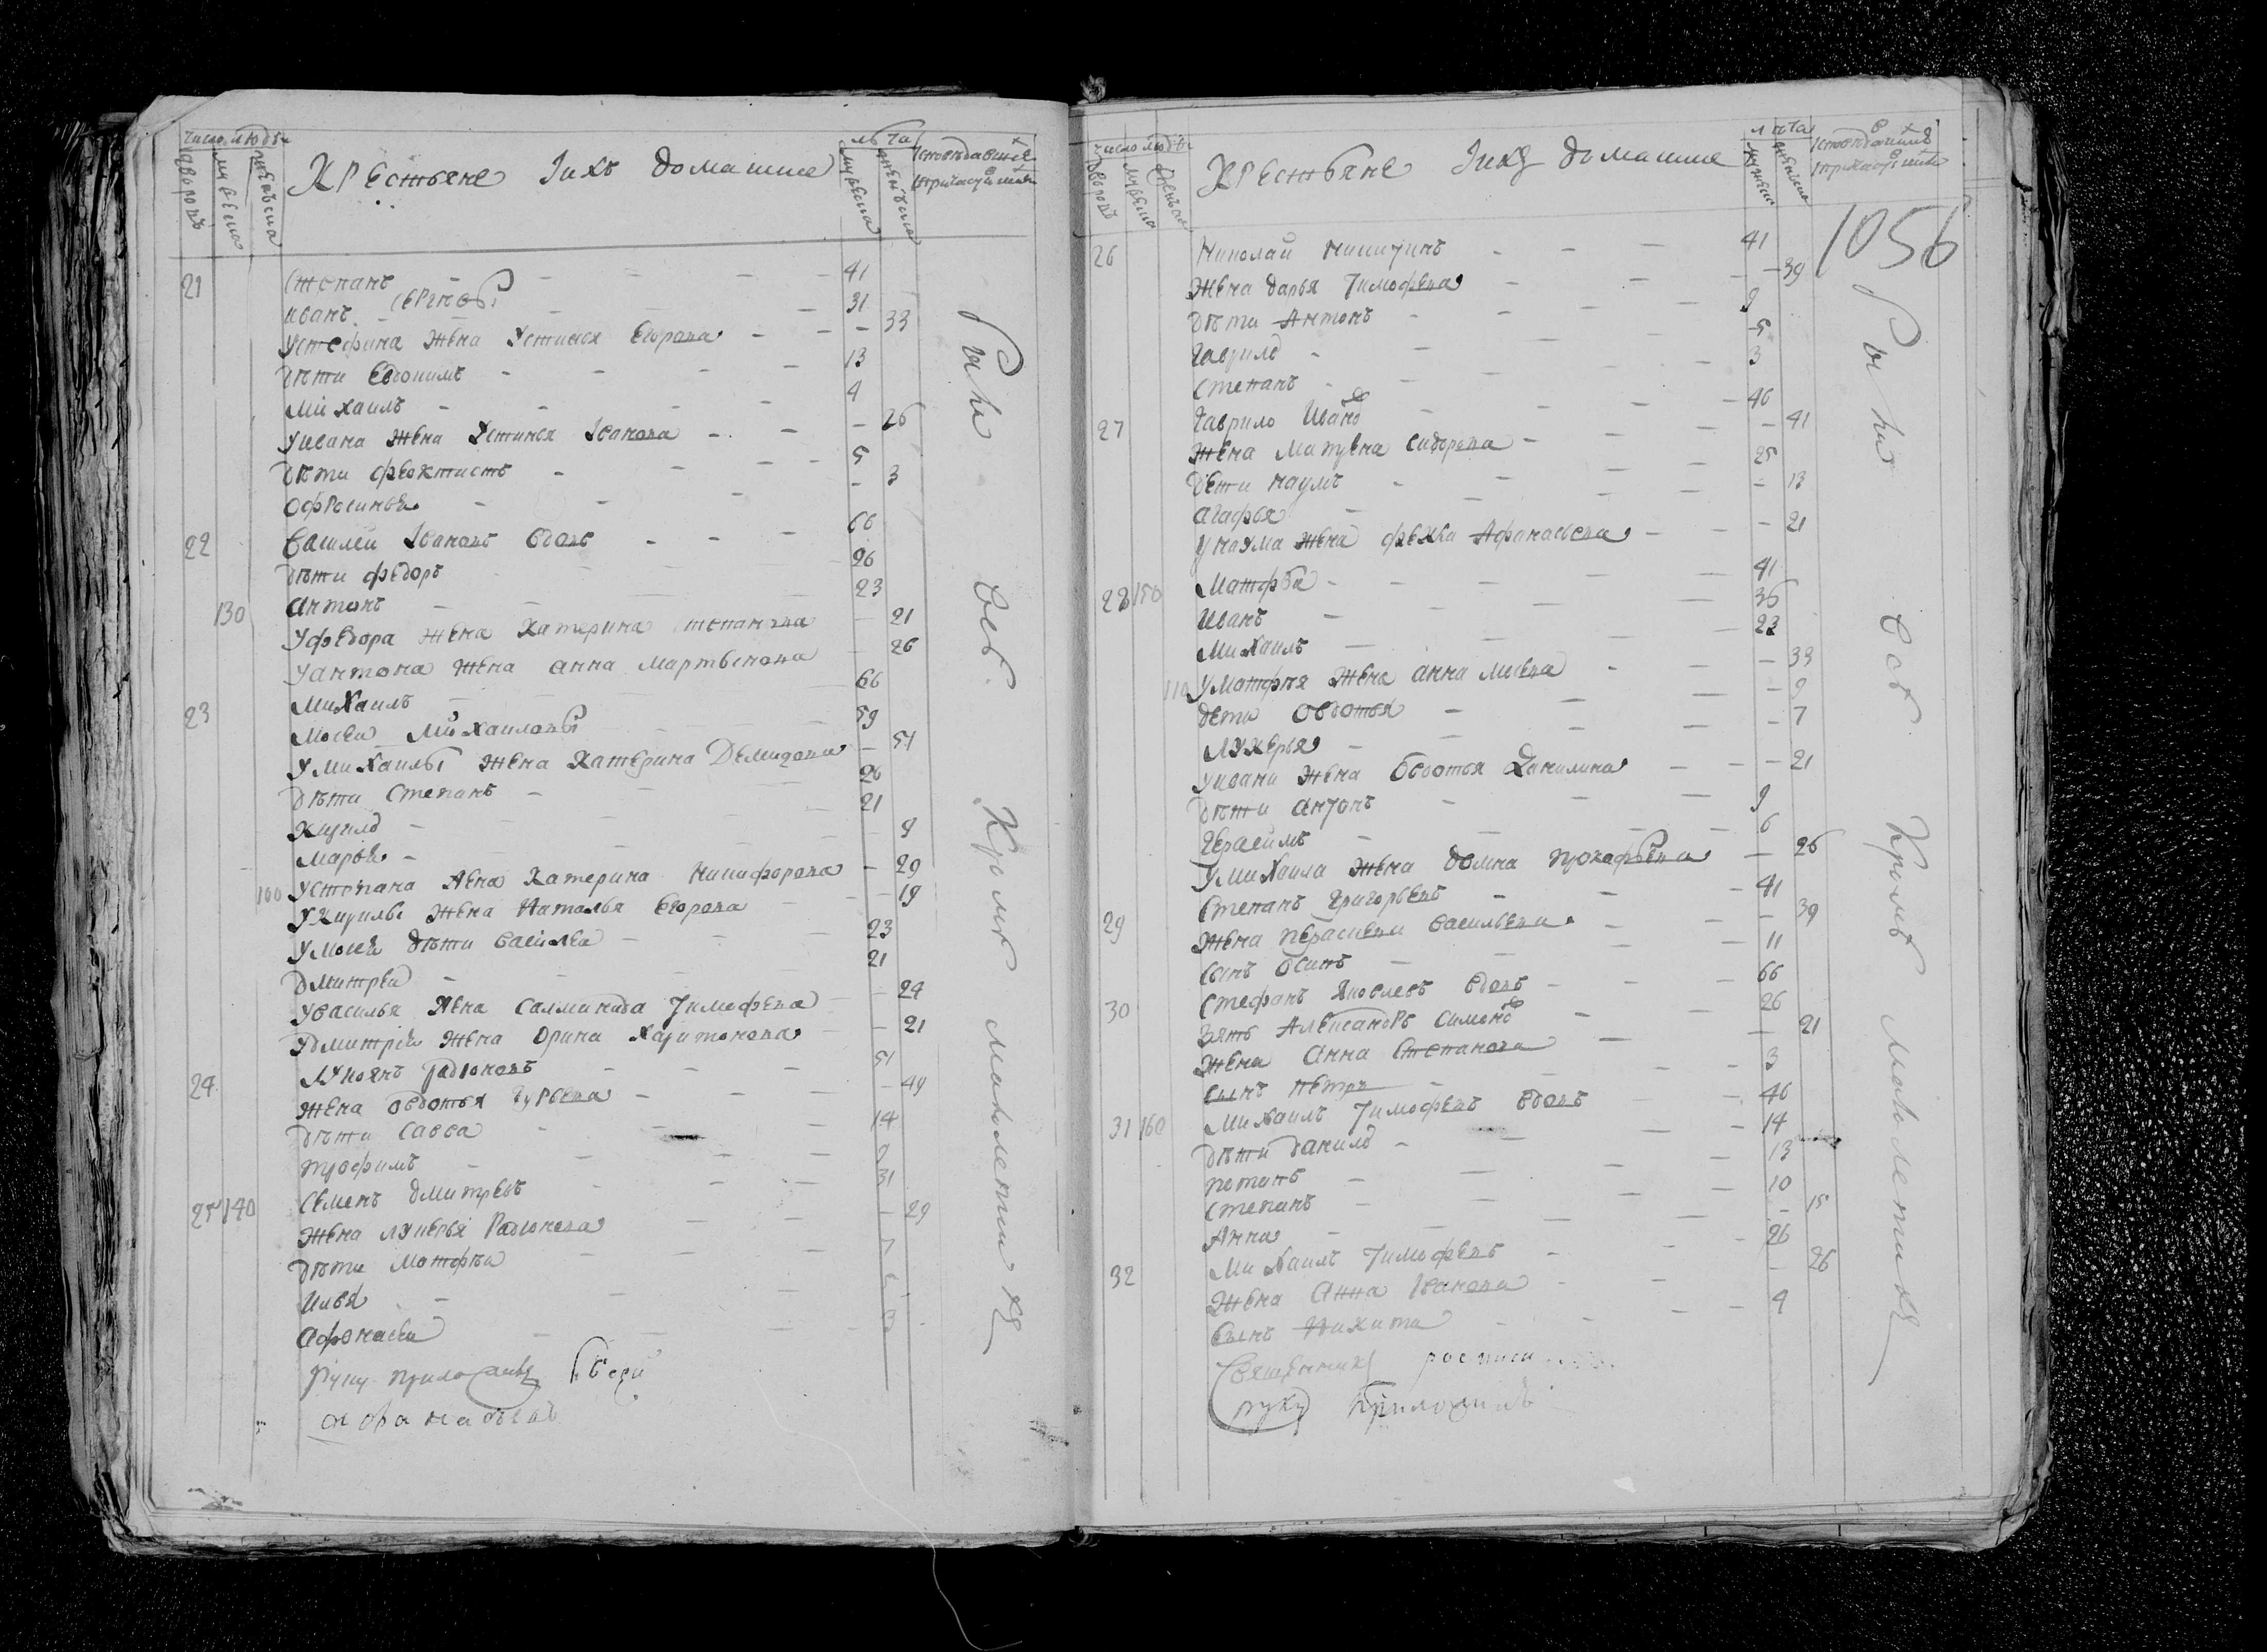 число людеи
дворовъ
мужеска
женьска
Крестьяне Іихъ домашние
лѣта
мужеска
женьска
21 Степанъ 41
иванъ Сергѣевы 31
Устефана жена Устинья Егорова 33
дѣти Евдокимъ 13
Михаилъ 4
Уивана жена Устинья Іванова 26
дѣти феоктистъ 5
офросинья 3
22 василеи Івановъ вдовъ 66
дѣти федоръ 26
130 антонъ 23
Уфедора жена Катерина степанова 21
Уантона жена анна Мартьенова 26
23 Михаилъ 66
Мосеи Михаиловы 59
Умихаилы жена Катерина Демидова 51
дѣти Степанъ 26
Кирило 21
Марья 9
100 Устепана жена Катерина никифорова 29
Укирилы жена Наталья Егорова 19
Умосея дѣти василеи 23
дмитреи 21
Увасилья жена Саломанида Тимофеева 24
Удмитрія жена Орина Харитонова 21
24 Лукоянъ Радіоновъ 51
жена овдотья Гурьева 49
дѣти Савва 14
трофимъ
25 140 Семенъ дмитревъ 31
жена лукерья Радіонова 29
дѣти Матфѣи
Илья
афонасеи
руку приложилъ
афонасьевъ
Вси кромѣ малолетникъ
число людеи
дворовъ
мужеска
женьска
Крестьяне Іихъ домашние
лѣта
мужеска
женьска
1056
26 Николаи Никитинъ 41
жена дарья Тимофеева 39
дѣти Антонъ 9
Гаврило 5
Степанъ 3
27 Гаврило Ивановъ 46
жена Матрена Сидорова 41
дѣти наумъ 25
агафья 13
Унаума жена фекла Афанасьева 21
28 150 Матфѣи 41
Иванъ 36
Михаилъ 23
110 Уматфѣя жена анна Мосеева 33
дети овдотья 9
лукерья 7
Уивана жена Евдотья Данилина 21
дѣти антонъ 9
Герасимъ 6
Умихаила жена домна прокофьева 26
29 Степанъ Григорьевъ 41
жена Парасковья васильева 39
сынъ осипъ 11
30 Стефанъ Яковлевъ вдовъ 66
зять Александръ Симоновъ 26
жена анна Степанова 21
сынъ петръ 3
31 160 Михаилъ Тимофеевъ вдовъ 46
дѣти данило 14
потапъ 13
степанъ 10
Анна 15
32 Михаилъ Тимофеевъ 26
жена Анна Іванова 26
сынъ Никита 4
Священникъ
руку приложилъ
Вси кромѣ малолетникъ